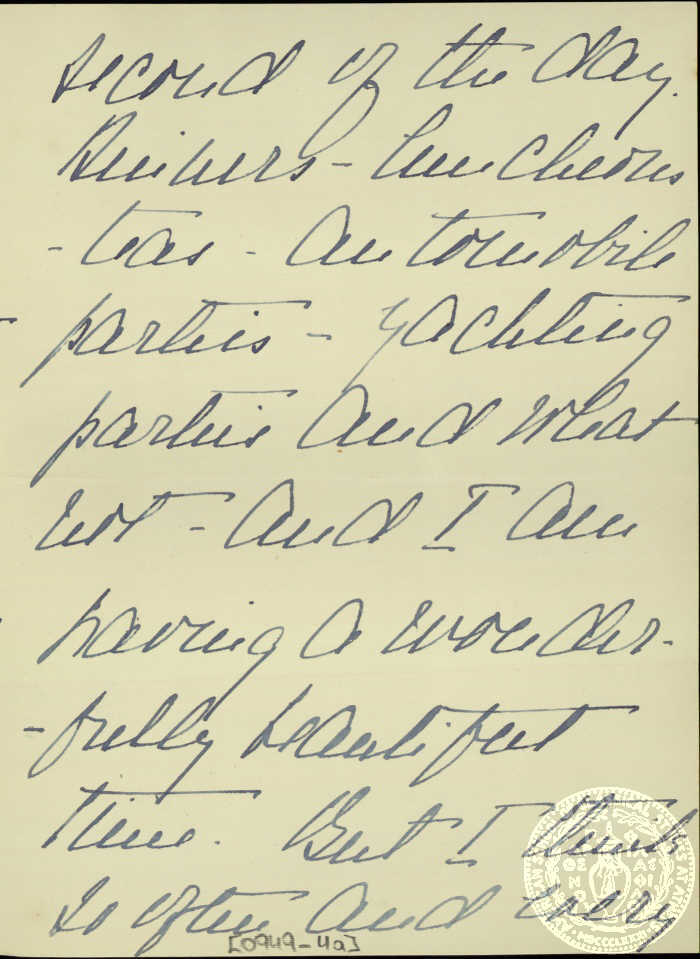 second of the day.
Dinners - luncheons
- teas - automobile
parties - yachting
parties and what
not - and I am
having a wonder-
-fully beautiful
time. But I think
so often and very
[0949-4a]